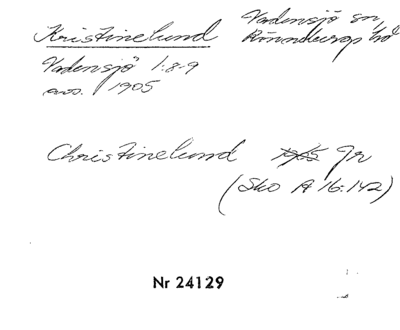 Kristinelund Vadensjö sn,
Rönnebergs hd
Vadensjö 1:8-9
avs. 1905
Christinelund 1985 Jr
(Sko A 16:142)
Nr 24129